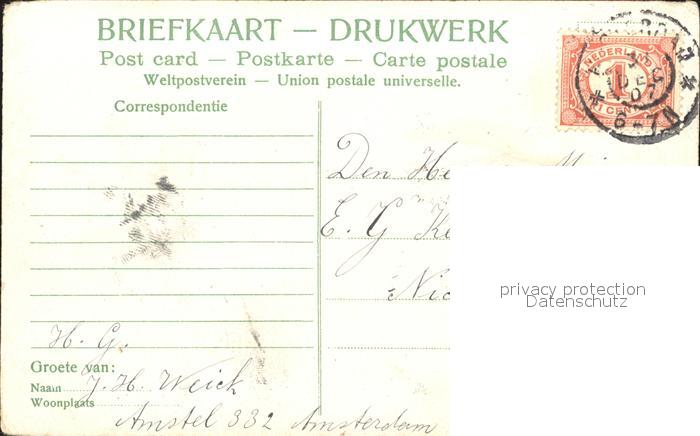 BRIEFKAART — DRUKWERK
Post card — Postkarte — Carte postale
Weltpostverein — Union postale universelle.
Correspondentie
NEDERLAND
1
CENT
6-7N
Den
E. G
privacy protection
Datenschutz
H. G.
Groete van:
Naam J. H. Weick
Woonplaats
Amstel 332 Amsterdam